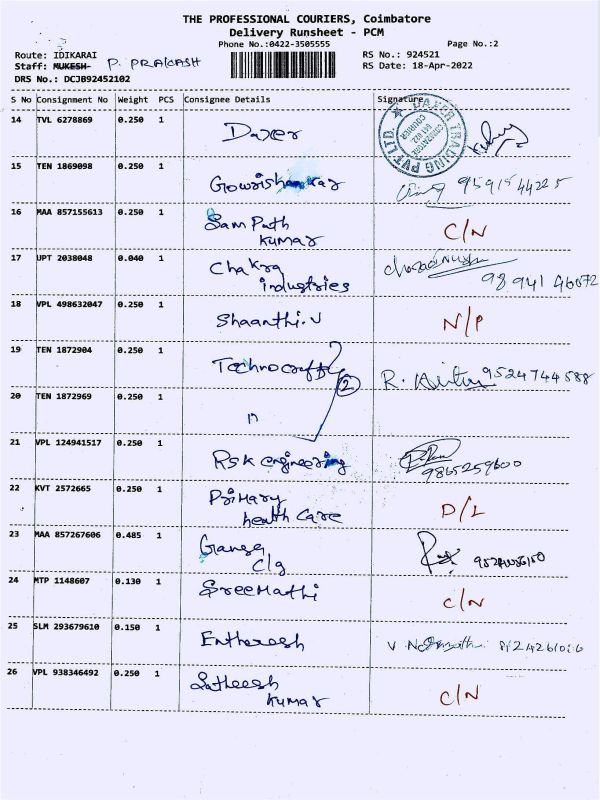 THE PROFESSIONAL COURIERS, Coimbatore
Delivery Runsheet - PCM
Phone No.:0422-3505555 Page No.:2
Route: IDIKARAI RS No.: 924521
Staff: MUKESH P. PRAKASH RS Date: 18-Apr-2022
DRS No.: DCJB92452102
S No Consignment No Weight PCS Consignee Details Signature
14 TVL 6278869 0.250 1 Daxer
DAXER TRADING PVT LTD. COIMBATORE 641 022 COURIER
15 TEN 1869098 0.250 1 Gowrishankar 9591544225
16 MAA 857155613 0.250 1 Sam Path
Kumar C/N
17 UPT 2038048 0.040 1 Chakra
industries 98941 46072
18 VPL 498632047 0.250 1 Shaanthi.V N/P
19 TEN 1872904 0.250 1 2 R. 9524744588
20 TEN 1872969 0.250 1 "
21 VPL 124941517 0.250 1 RSK engineering 9865259600
22 KVT 2572665 0.250 1 Primary
health Care D/L
23 MAA 857267606 0.485 1 Ganga
C/g
24 MTP 1148607 0.130 1 SreeMathi C/N
25 SLM 293679610 0.150 1 V
26 VPL 938346492 0.250 1 Satheesh
Kumar C/N